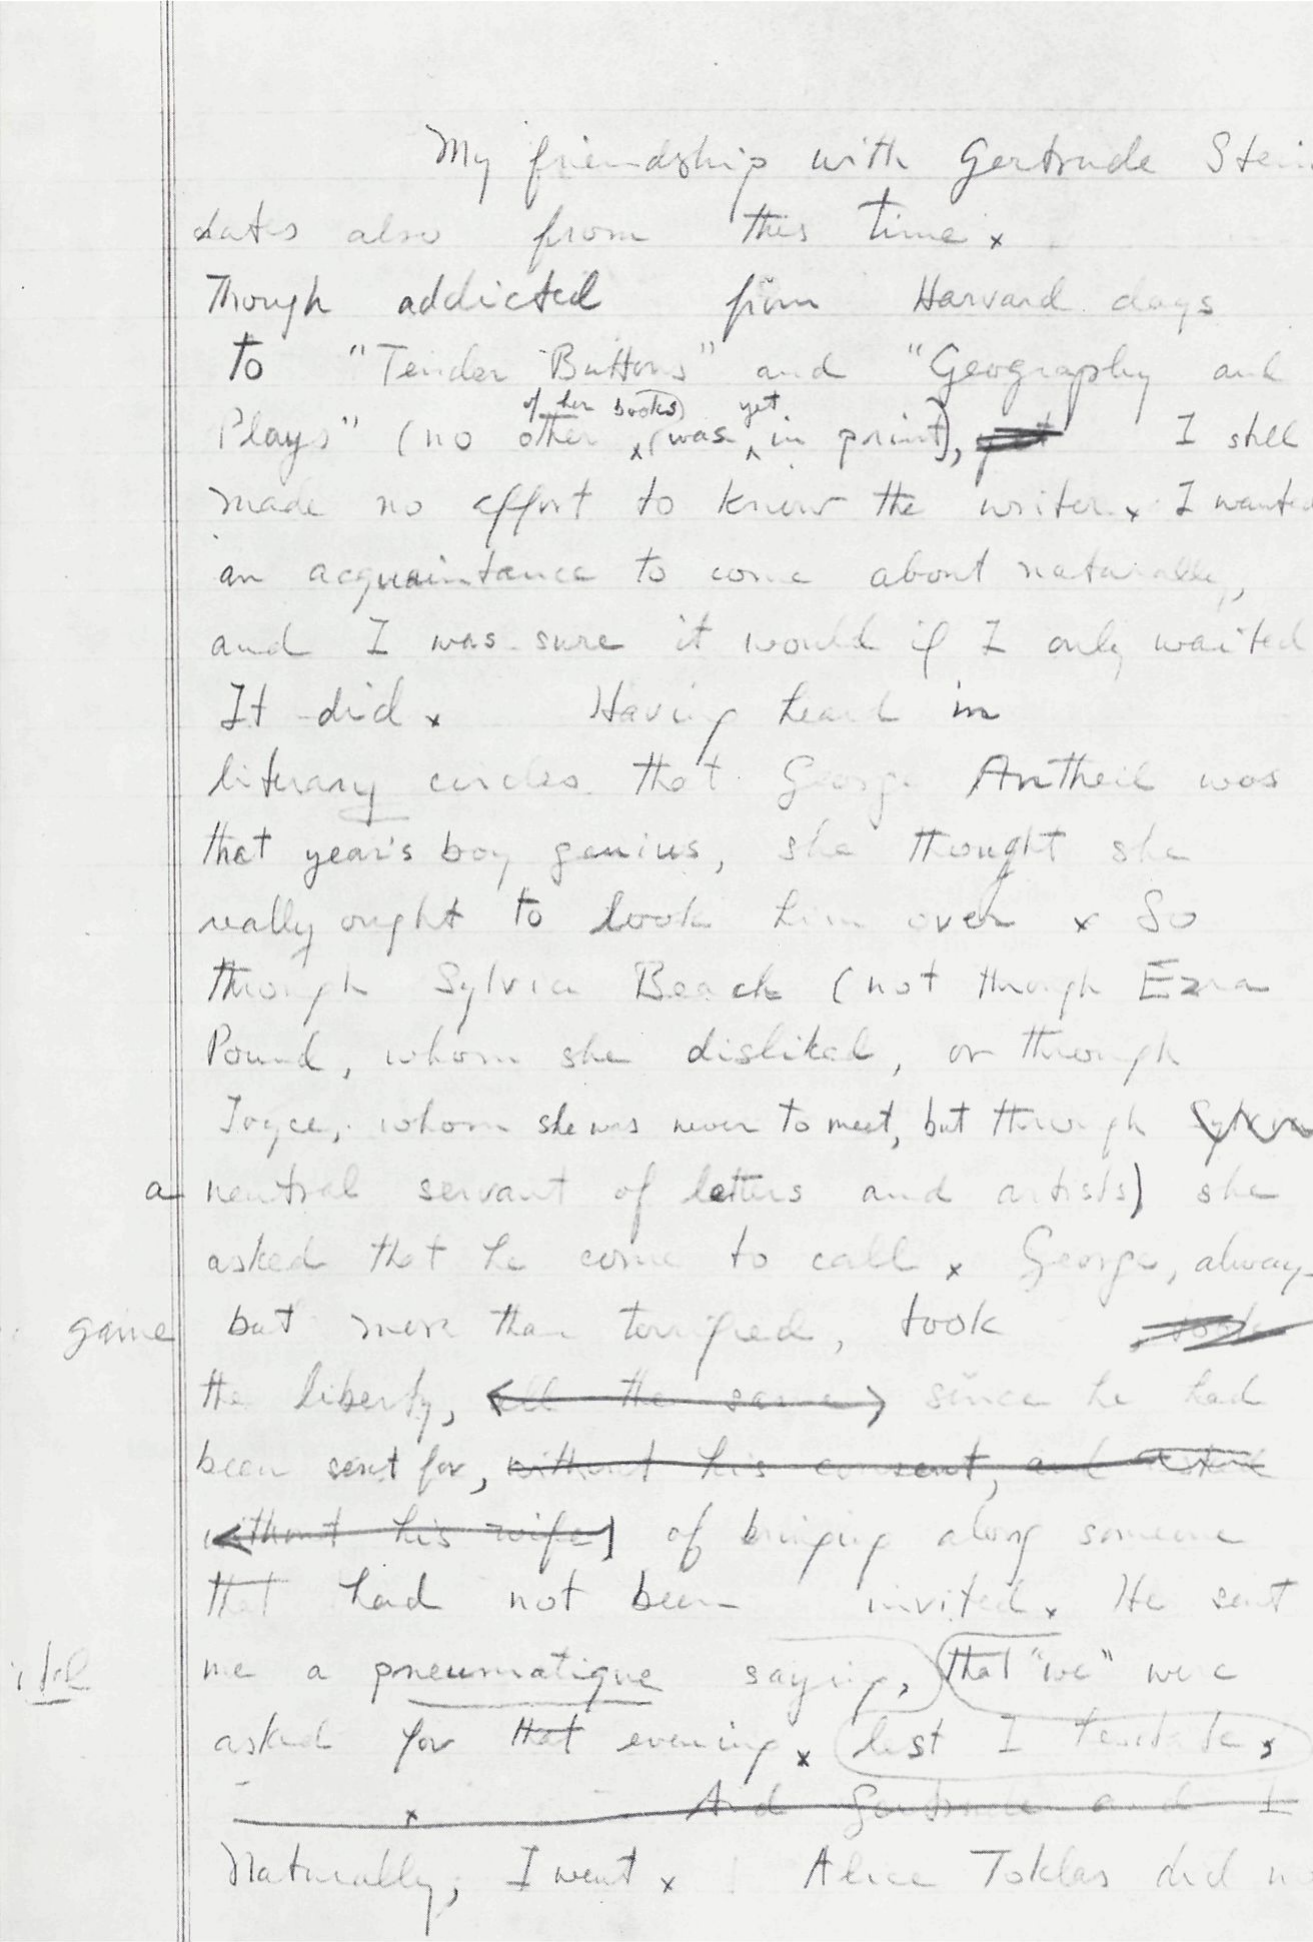 My friendship with Gertrude Stein
dates also from this time x
Though addicted from Harvard days
to "Tender Buttons" and "Geography and
of her books) yet
Plays" (no other x (was ^ in print), yet I still
made no effort to know the writer x I wanted
an acquaintance to come about naturally,
and I was sure it would if I only waited
It did x Having heard in
literary circles that George Antheil was
that year's boy genius, she thought she
really ought to look him over x So
through Sylvia Beach (not through Ezra
Pound, whom she disliked, or through
Joyce, whom she was never to meet, but through Sylvia
a neutral servant of letters and artists) she
asked that he come to call x George, always
game but more than terrified, took took
the liberty, all the same since he had
been sent for, without his consent, and asked
without his wife] of bringing along someone
that had not been invited x He sent
ital me a pneumatique saying, that "we" were
asked for that evening x lest I hesitate,
x And Gertrude and I
Naturally, I went x Alice Toklas did no